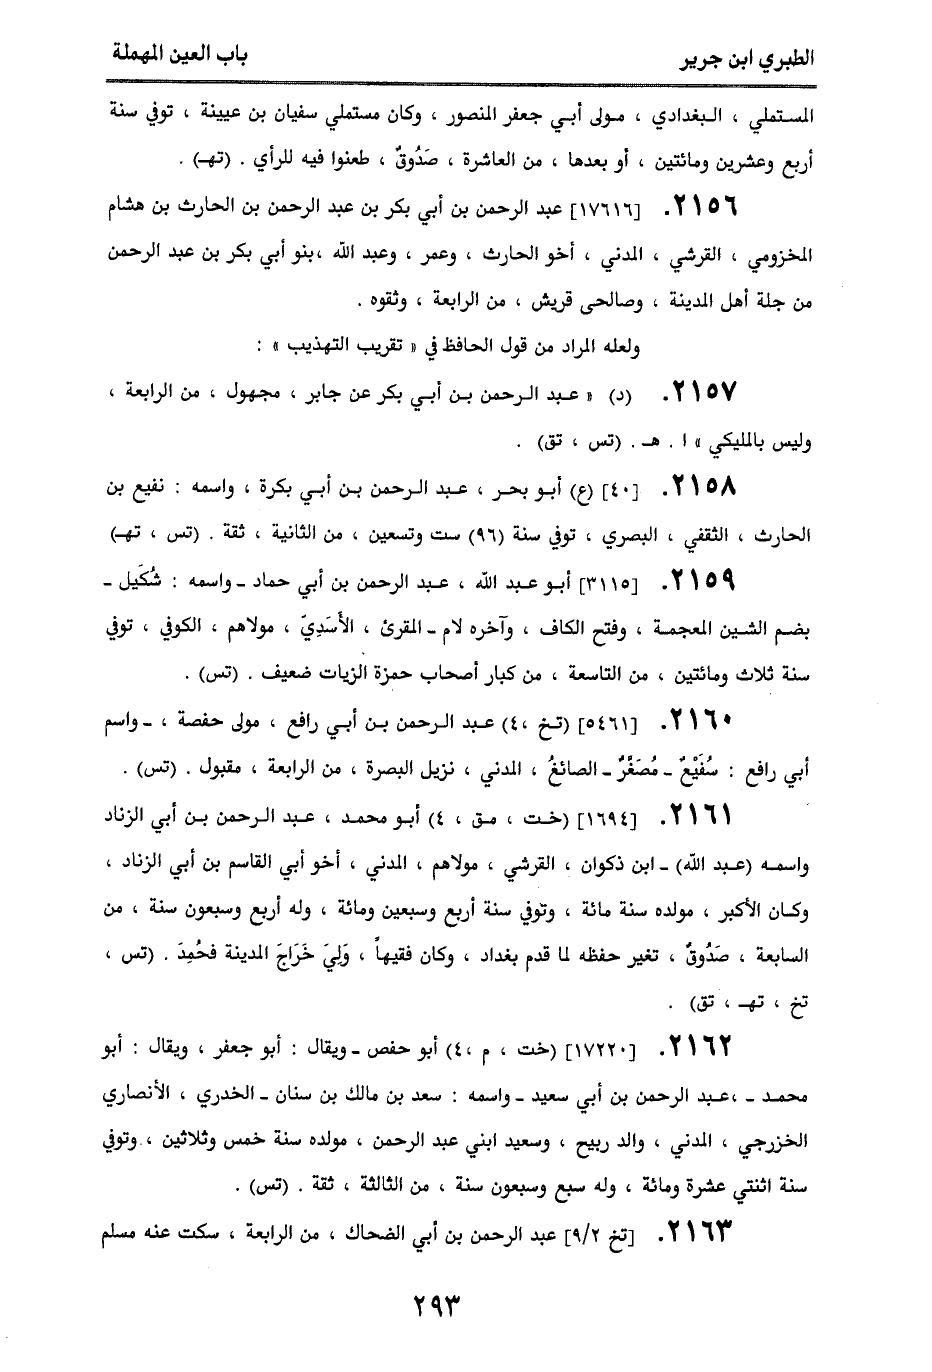 الطبري ابن جرير
باب العين المهملة
المستملي ، البغدادي ، مولى أبي جعفر المنصور ، وكان مستملي سفيان بن عيينة ، توفي سنة
أربع وعشرين ومائتين ، أو بعدها ، من العاشرة ، صَدُوقٌ ، طعنوا فيه للرأي . (تهـ) .
٢١٥٦. [١٧٦١٦] عبد الرحمن بن أبي بكر بن عبد الرحمن بن الحارث بن هشام
المخزومي ، القرشي ، المدني ، أخو الحارث ، وعمر ، وعبد الله ،بنو أبي بكر بن عبد الرحمن
من جلة أهل المدينة ، وصالحى قريش ، من الرابعة ، وثقوه .
ولعله المراد من قول الحافظ في « تقريب التهذيب » :
٢١٥٧. (د) « عبد الرحمن بن أبي بكر عن جابر ، مجهول ، من الرابعة ،
وليس بالمليكي » ا . هـ . (تس ، تق) .
٢١٥٨. [٤٠] (ع) أبو بحر ، عبد الرحمن بن أبي بكرة ، واسمه : نفيع بن
الحارث ، الثقفي ، البصري ، توفي سنة (٩٦) ست وتسعين ، من الثانية ، ثقة . (تس ، تهـ)
٢١٥٩. [٣١١٥] أبو عبد الله ، عبد الرحمن بن أبي حماد ـ واسمه : شُكَيل ـ
بضم الشين المعجمة ، وفتح الكاف ، وآخره لام ـ المقرئ ، الأَسَدِيّ ، مولاهم ، الكوفي ، توفي
سنة ثلاث ومائتين ، من التاسعة ، من كبار أصحاب حمزة الزيات ضعيف . (تس) .
٢١٦٠. [٥٤٦١] (تخ ،٤) عبد الرحمن بن أبي رافع ، مولى حفصة ، ـ واسم
أبي رافع : سُفَيْعٌ ـ مُصَغَّرٌ ـ الصائغُ ، المدني ، نزيل البصرة ، من الرابعة ، مقبول . (تس) .
٢١٦١. [١٦٩٤] (خت ، مق ، ٤) أبو محمد ، عبد الرحمن بن أبي الزناد
واسمه (عبد الله) ـ ابن ذكوان ، القرشي ، مولاهم ، المدني ، أخو أبي القاسم بن أبي الزناد ،
وكان الأكبر ، مولده سنة مائة ، وتوفي سنة أربع وسبعين ومائة ، وله أربع وسبعون سنة ، من
السابعة ، صَدُوقٌ ، تغير حفظه لما قدم بغداد ، وكان فقيهاً ، وَلِيَ خَرَاجَ المدينة فحُمِدَ . (تس ،
تخ ، تهـ ، تق) .
٢١٦٢. [١٧٢٢٠] (خت ، م ،٤) أبو حفص ـ ويقال : أبو جعفر ، ويقال : أبو
محمد ـ ،عبد الرحمن بن أبي سعيد ـ واسمه : سعد بن مالك بن سنان ـ الخدري ، الأنصاري
الخزرجي ، المدني ، والد ربيح ، وسعيد ابني عبد الرحمن ، مولده سنة خمس وثلاثين ، وتوفي
سنة اثنتي عشرة ومائة ، وله سبع وسبعون سنة ، من الثالثة ، ثقة . (تس) .
٢١٦٣. [تخ ٩/٢] عبد الرحمن بن أبي الضحاك ، من الرابعة ، سكت عنه مسلم
٢٩٣